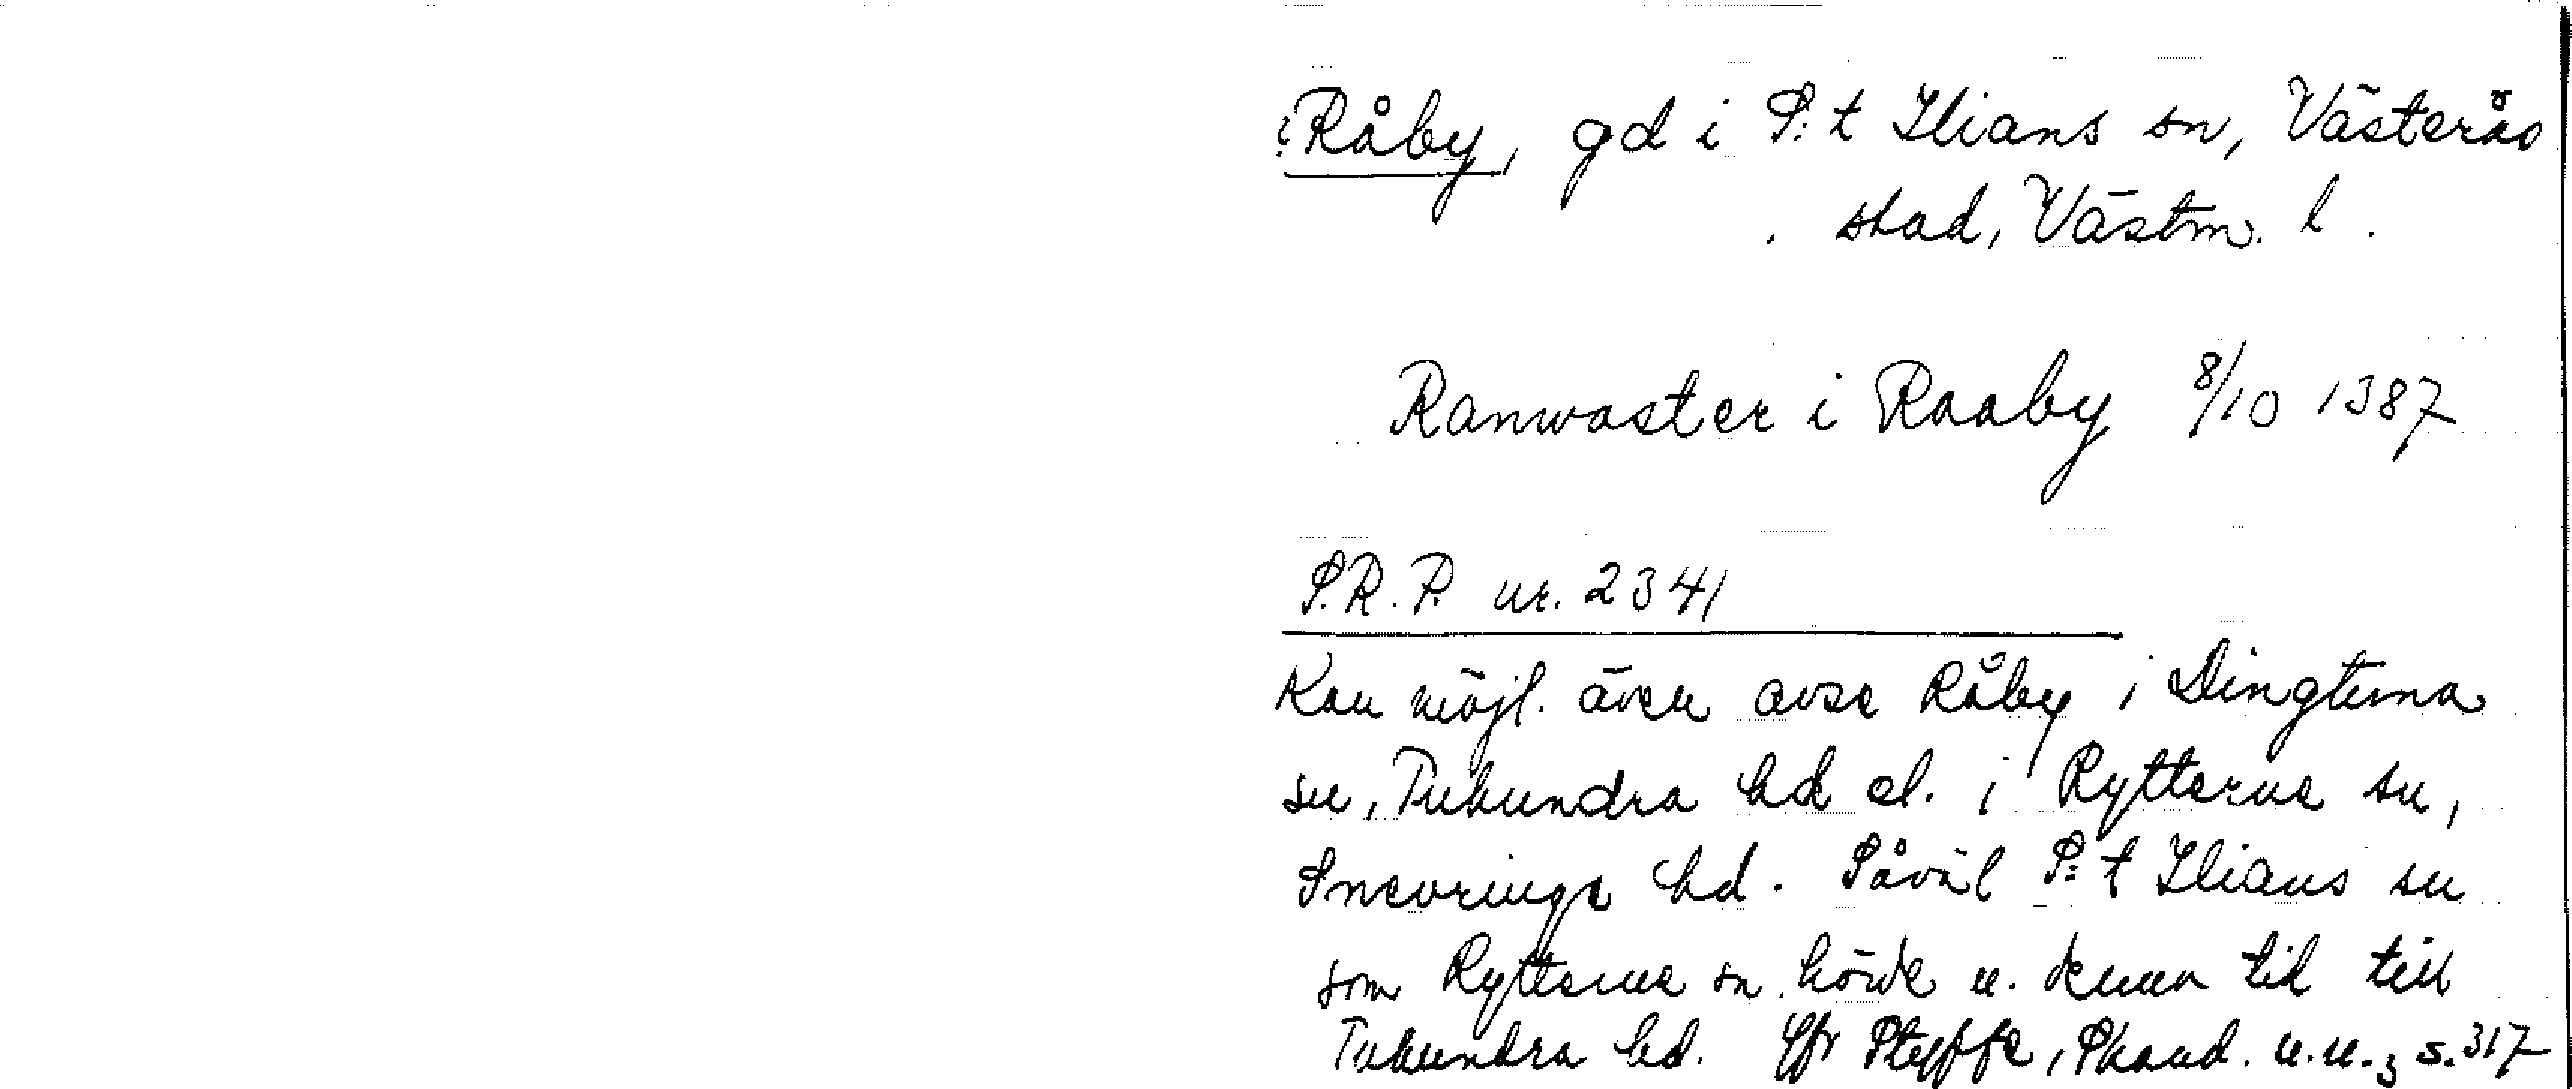 ?Råby, gd i S:t Ilians sn, Västerås
stad, Västm. l.
Ranwaster i Raaby 8/10 1387
S.R.P. nr. 2341
Kan möjl. även avse Råby i Dingtuna
sn, Tuhundra hd el. i Rytterne sn,
Snevringe hd. Såväl S:t Ilians sn
som Rytterne sn hörde u. denna tid till
Tuhundra hd. Jfr Styffe, Skand. u. u.3 s. 317